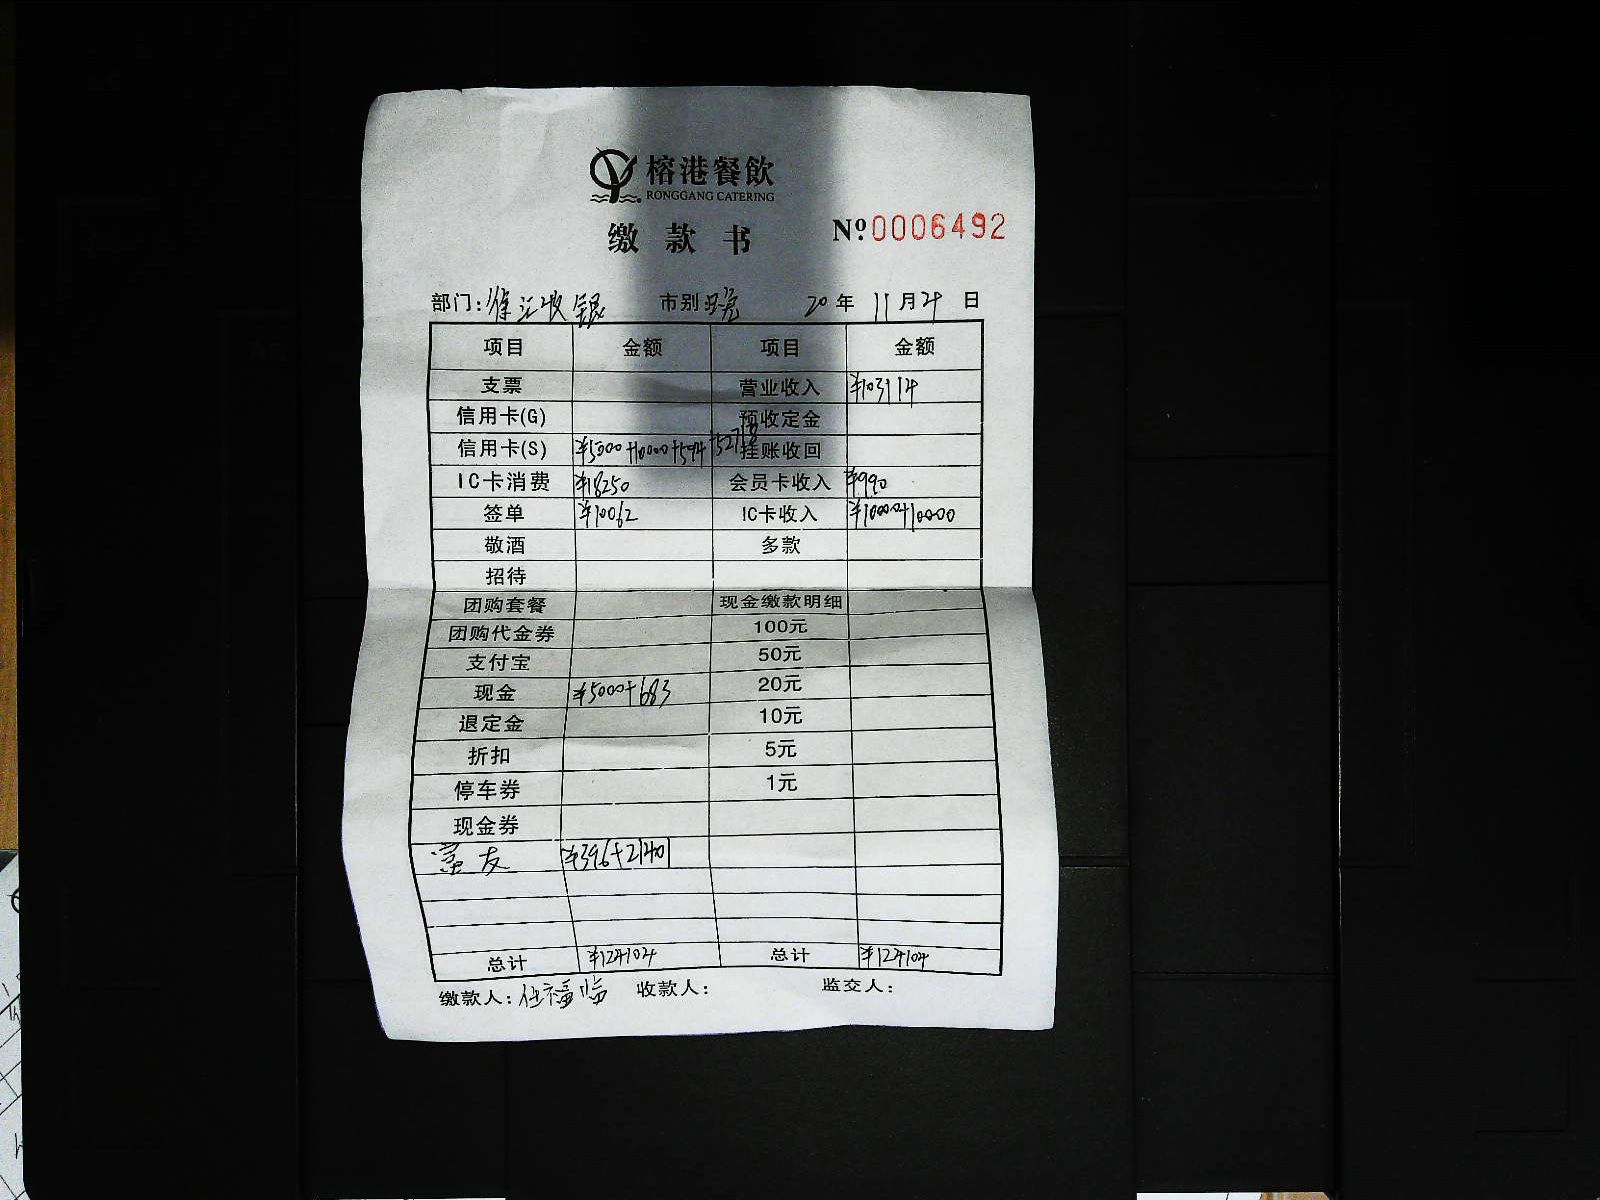 榕港餐飲
RONGGANG CATERING
缴款书
Nº0006492
部门:徐汇收银 市别 晚 20年 11月 日
项目 金额 项目 金额
支票 营业收入 ¥103114
信用卡(G) 预收定金
信用卡(S) ¥5000+10000+594+52718 挂账收回
IC卡消费 ¥18250 会员卡收入 ¥990
签单 ¥10062 IC卡收入 ¥10000+10000
敬酒 多款
招待
团购套餐 现金缴款明细
团购代金券 100元
支付宝 50元
现金 ¥5000+683 20元
退定金 10元
折扣 5元
停车券 1元
现金券
友 ¥396+21401
总计 ¥124104 总计 ¥124104
缴款人:任福临 收款人: 监交人: